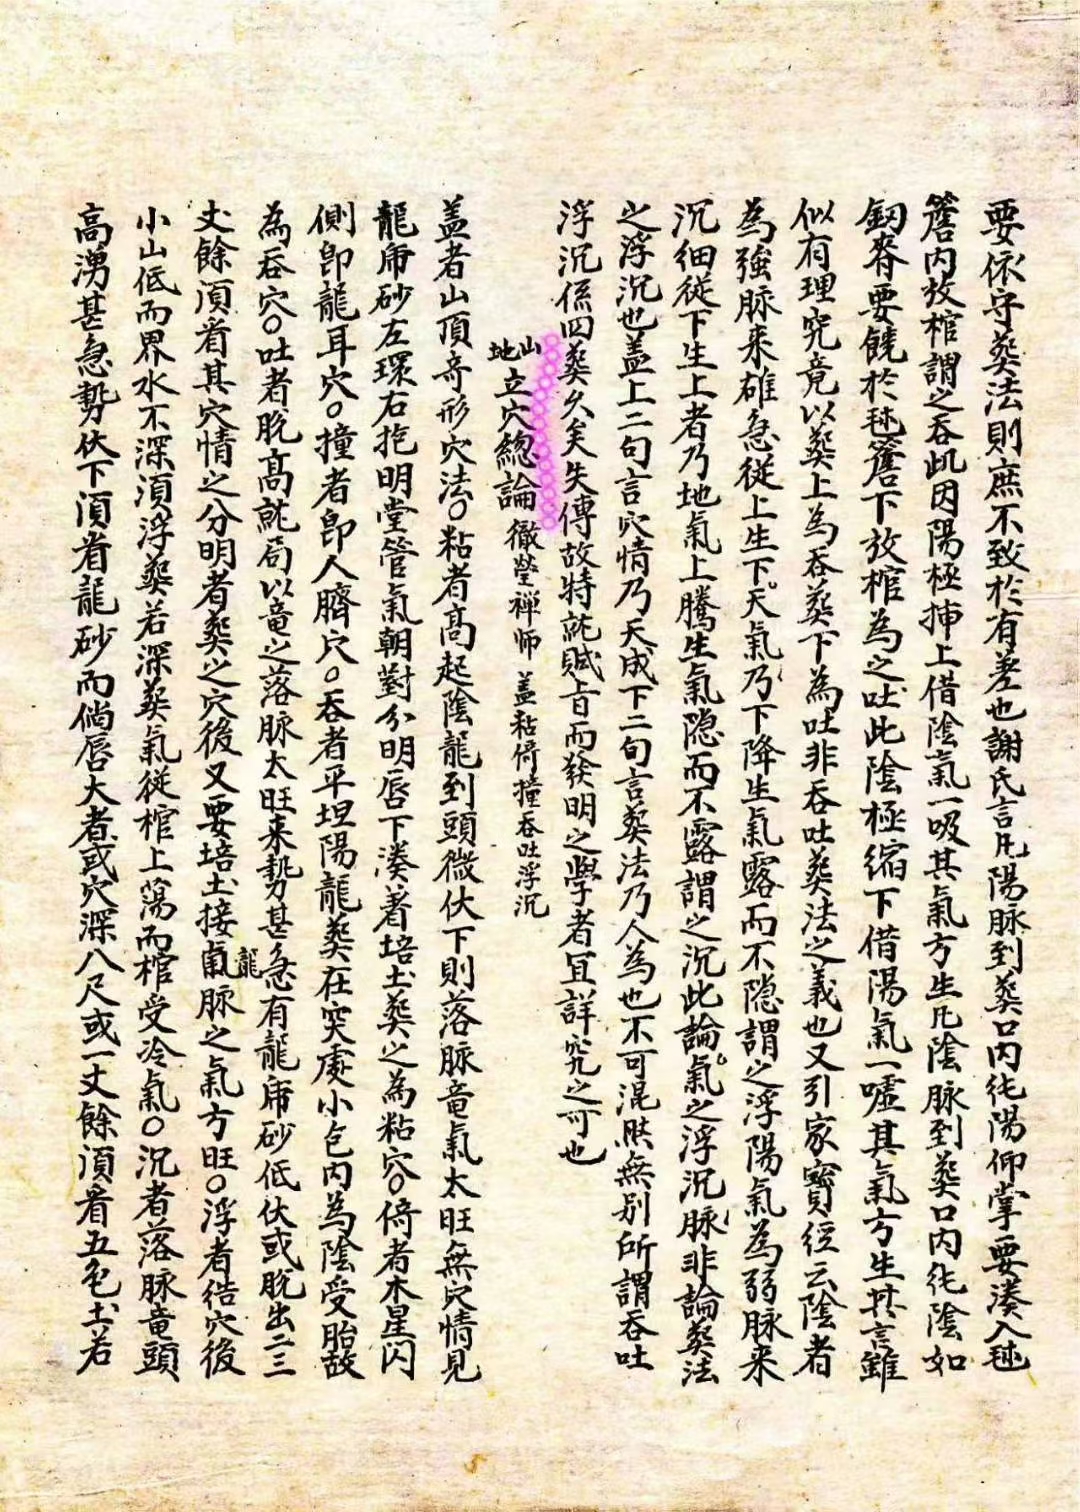 要依守葬法則庶不致於有差也謝氏言凡陽脉到葬口内純陽仰掌要湊入毬
簷内放棺謂之吞此因陽極揷上借陰氣一吸其氣方生凡陰脉到葬口内純陰如
劔脊要饒於毬簷下放棺為之吐此陰極縮下借陽氣一噓其氣方生其言雖
似有理究竟以葬上為吞葬下為吐非吞吐葬法之義也又引家寶经云陰者
為強脉来雄急從上生下天氣乃下降生氣露而不隐謂之浮陽氣為弱脉来
沉细從下生上者乃地氣上騰生氣隐而不露謂之沉此論氣之浮沉脉非論葬法
之浮沉也盖上二句言穴情乃天成下二句言葬法乃人為也不可混然無别所謂吞吐
浮沉係四葬久矣失傳故特就賦旨而發明之學者冝詳究之可也
山地立穴總論 徹瑩禅师 盖粘倚撞吞吐浮沉
盖者山頂奇形穴法○粘者髙起陰龍到頭微伏下則落脉竜氣太旺無穴情見
龍席砂左環右抱明堂管氣朝對分明唇下湊著培土葵之為粘穴○倚者木星閃
側即龍耳穴○撞者即人臍穴○吞者平坦陽龍葵在突處小乞内為陰受胎故
為吞穴○吐者脫髙就局以竜之落脉太旺来勢甚急有龍席砂低伏或脫出二三
丈餘湏看其穴情之分明者葵之穴後又要培土接龍脉之氣方旺○浮者结穴後
小山低而界水不深湏浮葵若深葵氣從棺上蕩而棺受冷氣○沉者落脉竜頭
高湧甚急勢伏下湏看龍砂而倘唇大者或穴深八尺或一丈餘湏看五色土若